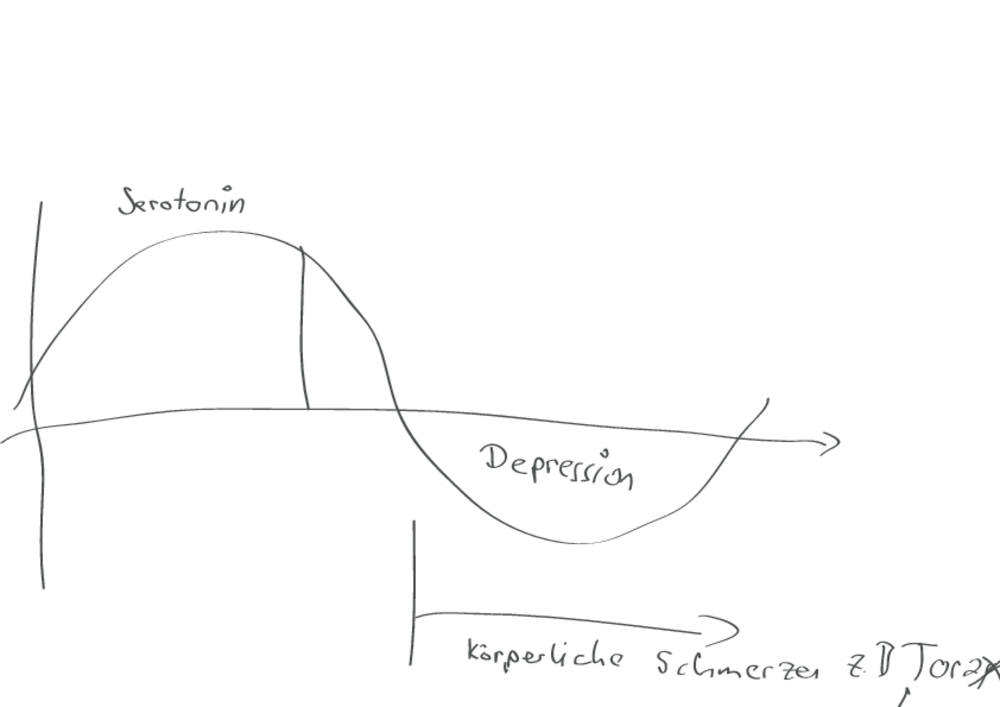 Serotonin
Depression
körperliche Schmerzen z.B Torax